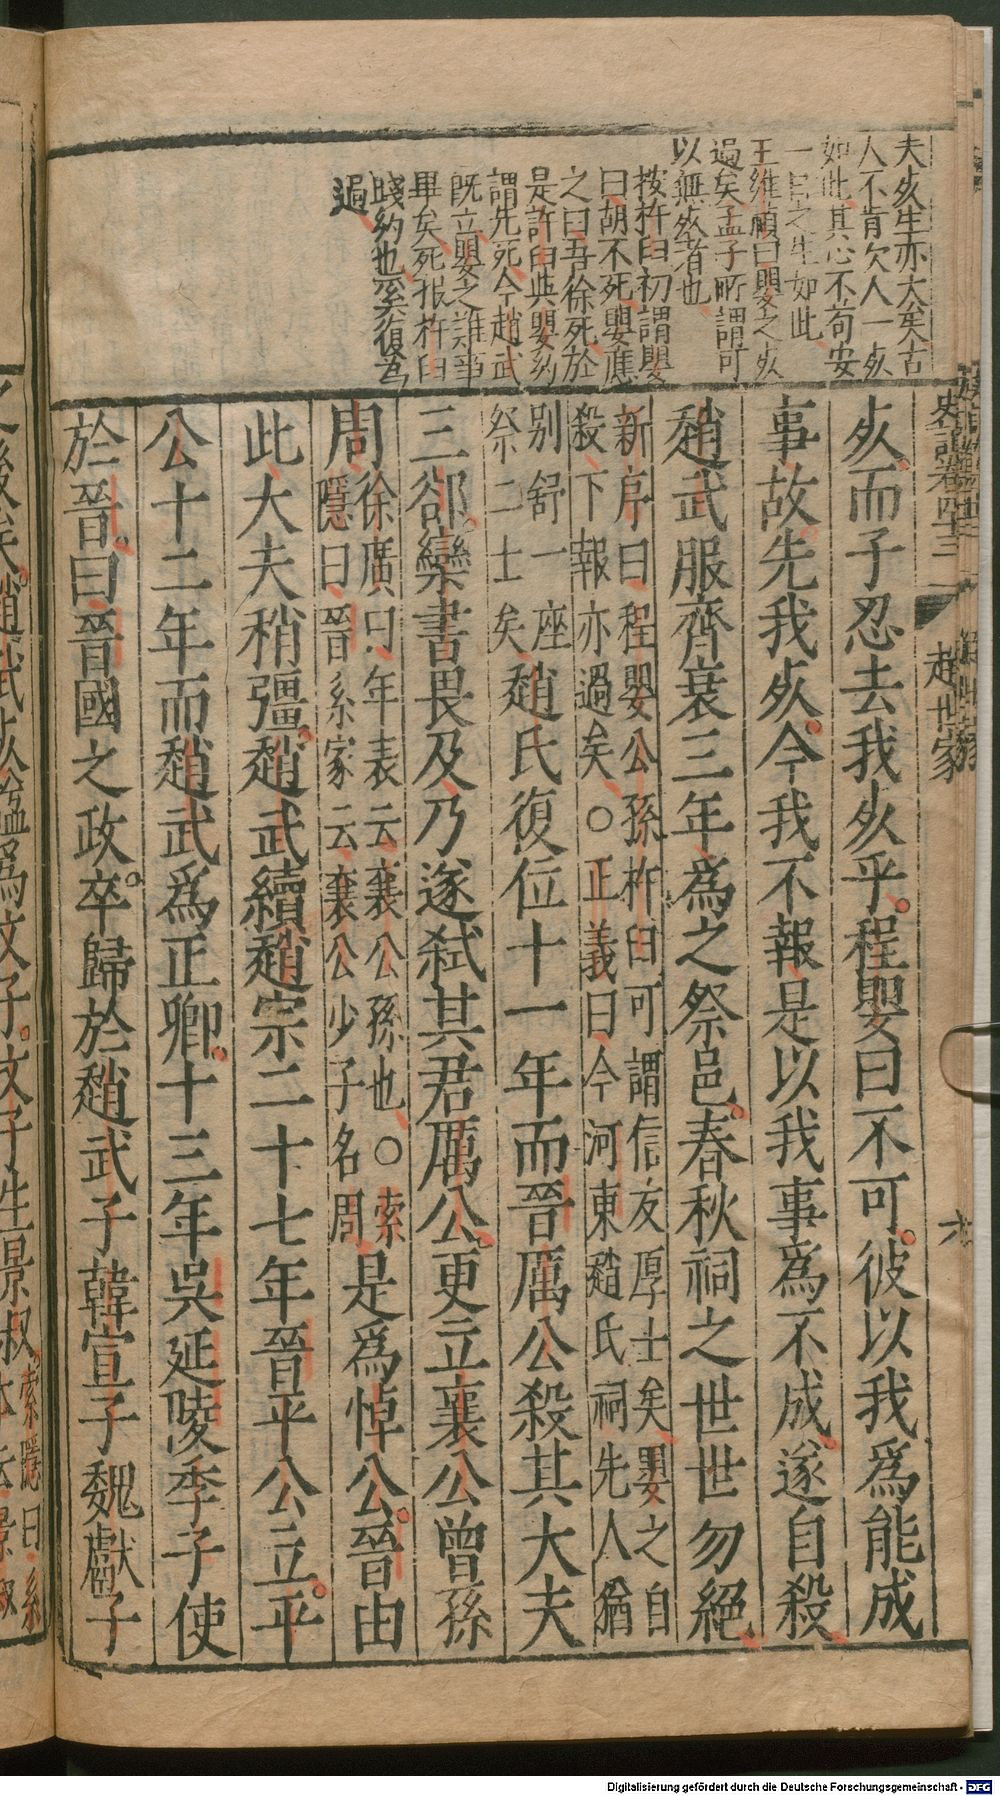 夫死生亦大矣古
人不肯欠人一死
如此其心不苟安
一日之生如此
王維楨曰嬰之死
過矣孟子所謂可
以無死者也
按杵臼初謂嬰
曰胡不死嬰應
之曰吾徐死於
是許臼與嬰約
謂先死今趙武
既立嬰之誰事
畢矣死報杵臼
踐約也奚復爲
過
史記卷四十三
趙世家
六
死而子忍去我死乎程嬰曰不可彼以我爲能成
事故先我死今我不報是以我事爲不成遂自殺
趙武服齊衰三年爲之祭邑春秋祠之世世勿絕
新序曰程嬰公孫杵臼可謂信友厚士矣嬰之自
殺下報亦過矣○正義曰今河東趙氏祠先人猶
別舒一座
祭二士矣
趙氏復位十一年而晉厲公殺其大夫
三郤欒書畏及乃遂弑其君厲公更立襄公曾孫
周
徐廣曰年表云襄公孫也○索
隱曰晉系家云襄公少子名周
是爲悼公晉由
此大夫稍彊趙武續趙宗二十七年晉平公立平
公十二年而趙武爲正卿十三年吳延陵季子使
於晉曰晉國之政卒歸於趙武子韓宣子魏獻子
之後矣趙武死謚爲文子文子生景叔
索隱曰系
本云景叔
Digitalisierung gefördert durch die Deutsche Forschungsgemeinschaft - DFG